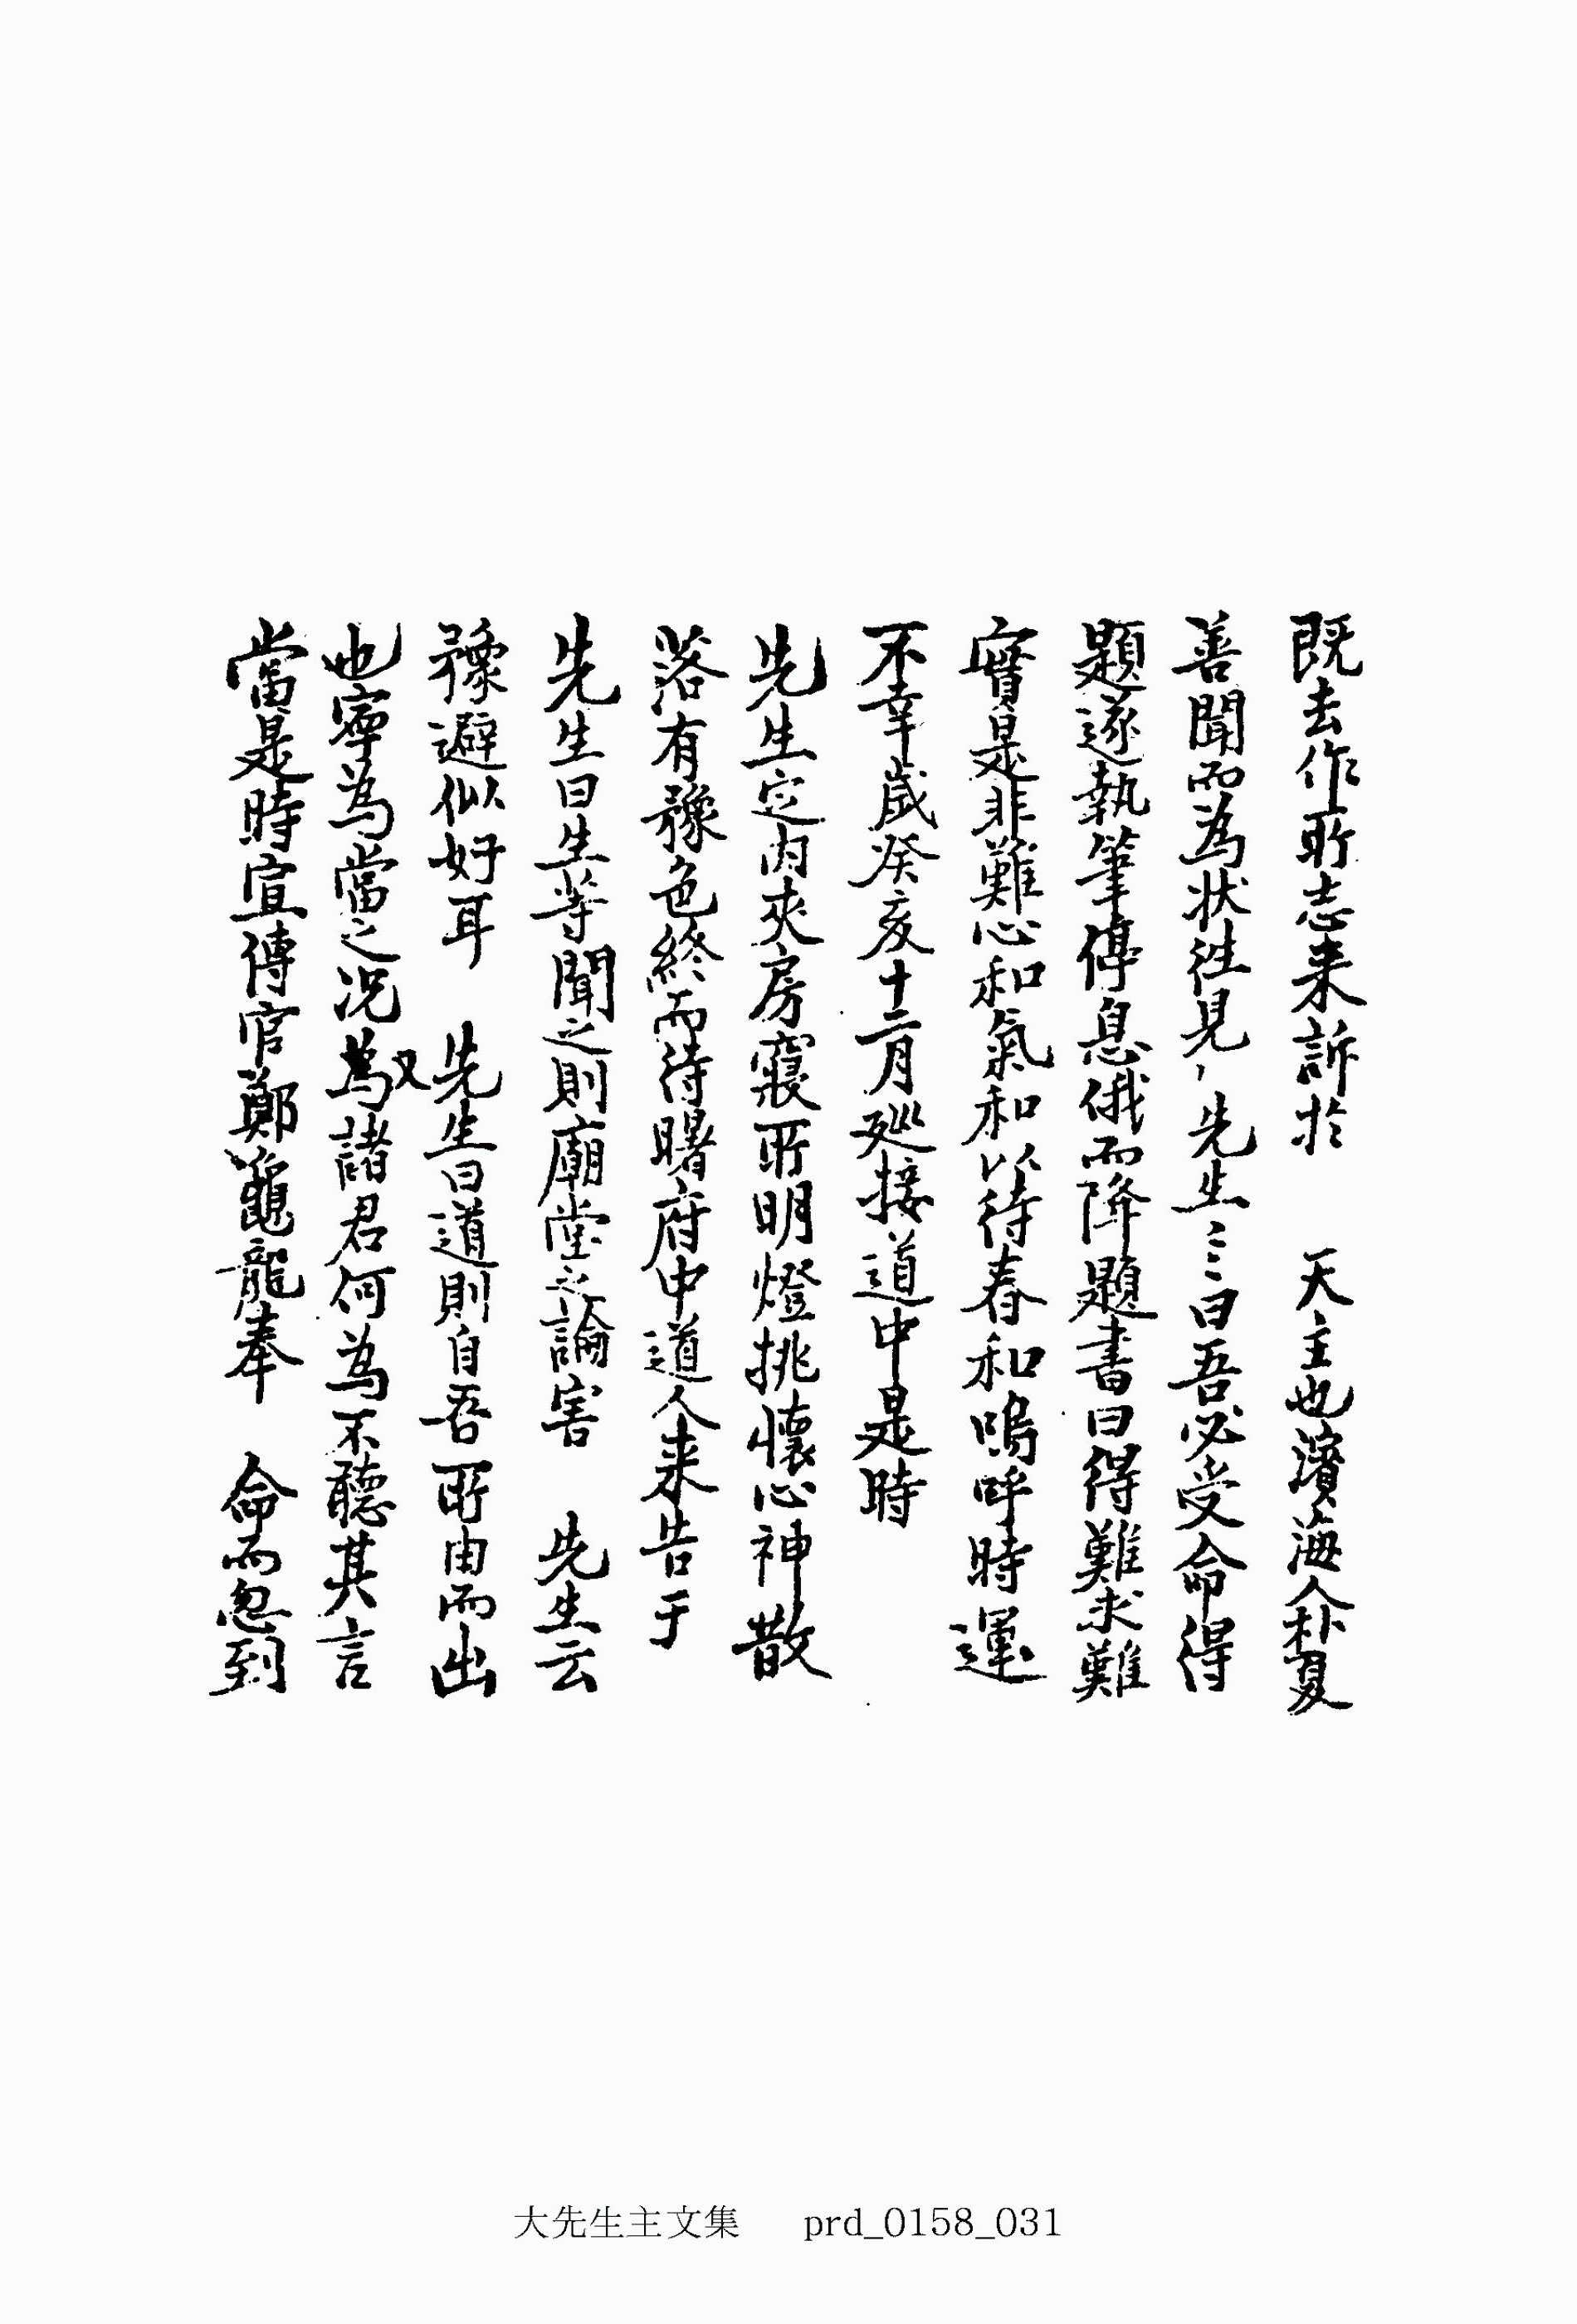 既去作所志来訴於　天主也濱海人朴夏
善聞而為状徃見先生〻曰吾必受命得
題遂執筆停息俄而降題書曰得難求難
實是非難心和氣和以待春和嗚呼時運
不幸歲癸亥十二月廵接道中是時
先生定内夾房寢所明燈挑懷心神散
落有豫色終而待曙府中道人来告于
先生曰生等聞之則廟堂之論害　先生云
豫避似好耳　先生曰道則自吾所由而出
也寧為當之况又為諸君何為不聽其言
當是時宣傳官鄭龜龍奉　命而忽到
大先生主文集 prd_0158_031